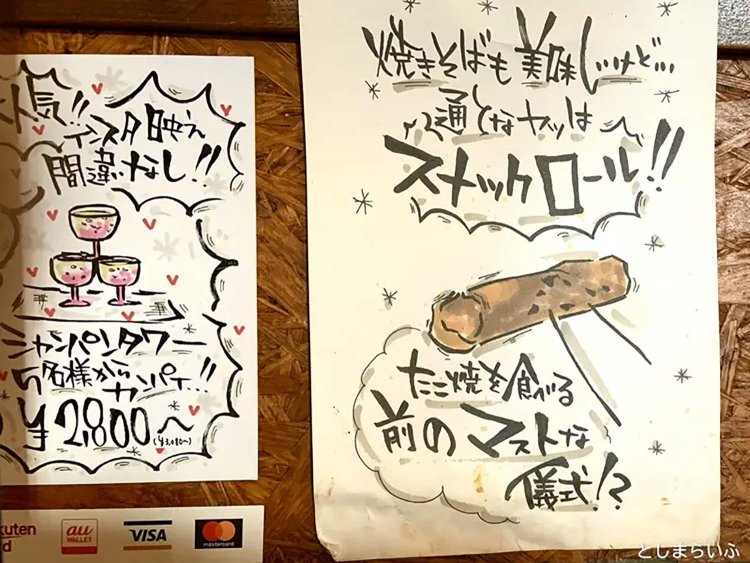 人気!!
インスタ映え
間違いなし!!
シャンパンタワー
5名様からカンパイ!!
¥2,800〜
(¥3,080〜)
焼きそばも美味しいけど…
通となヤツは
スナックロール!!
たこ焼を食べる
前のマストな
儀式!?
au
WALLET
VISA
mastercard
としまらいふ